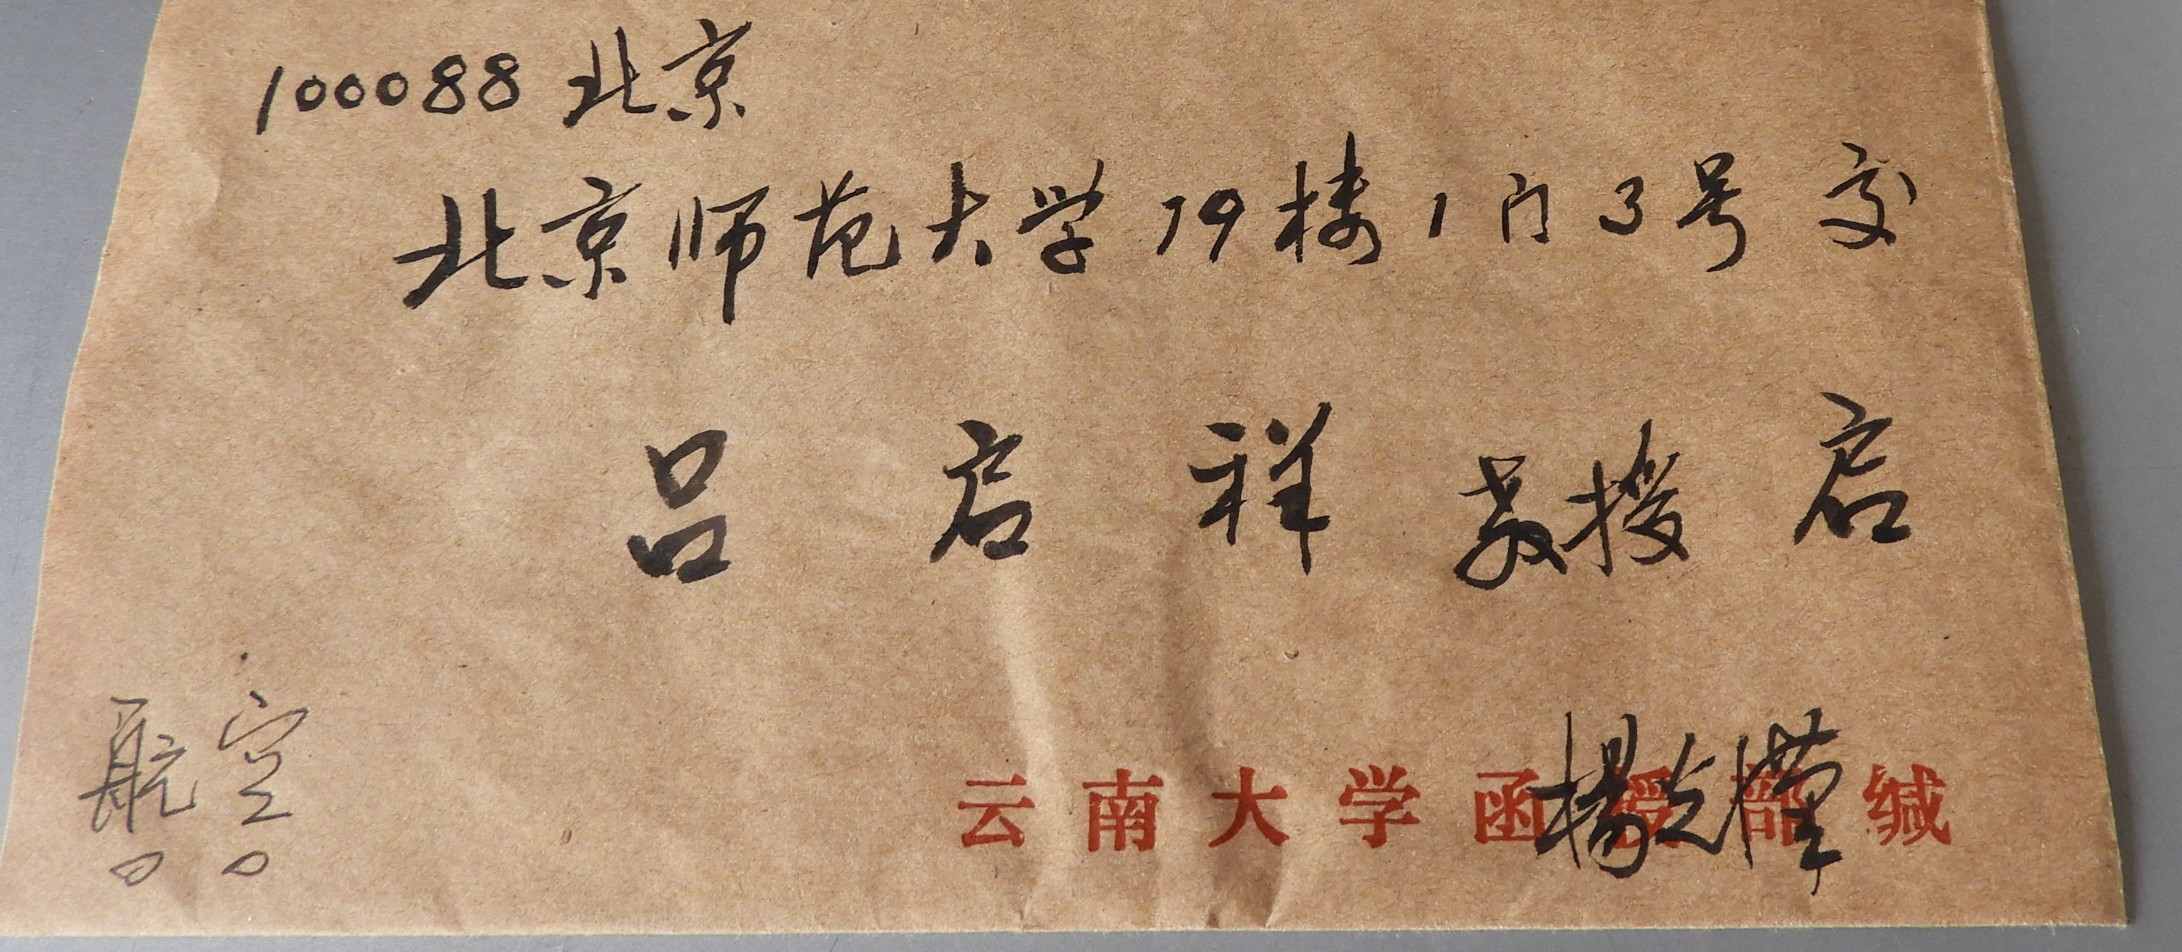 100088 北京
北京师范大学19楼1门3号 交
吕启祥 教授 启
航空
云南大学函授部缄
楊光漢